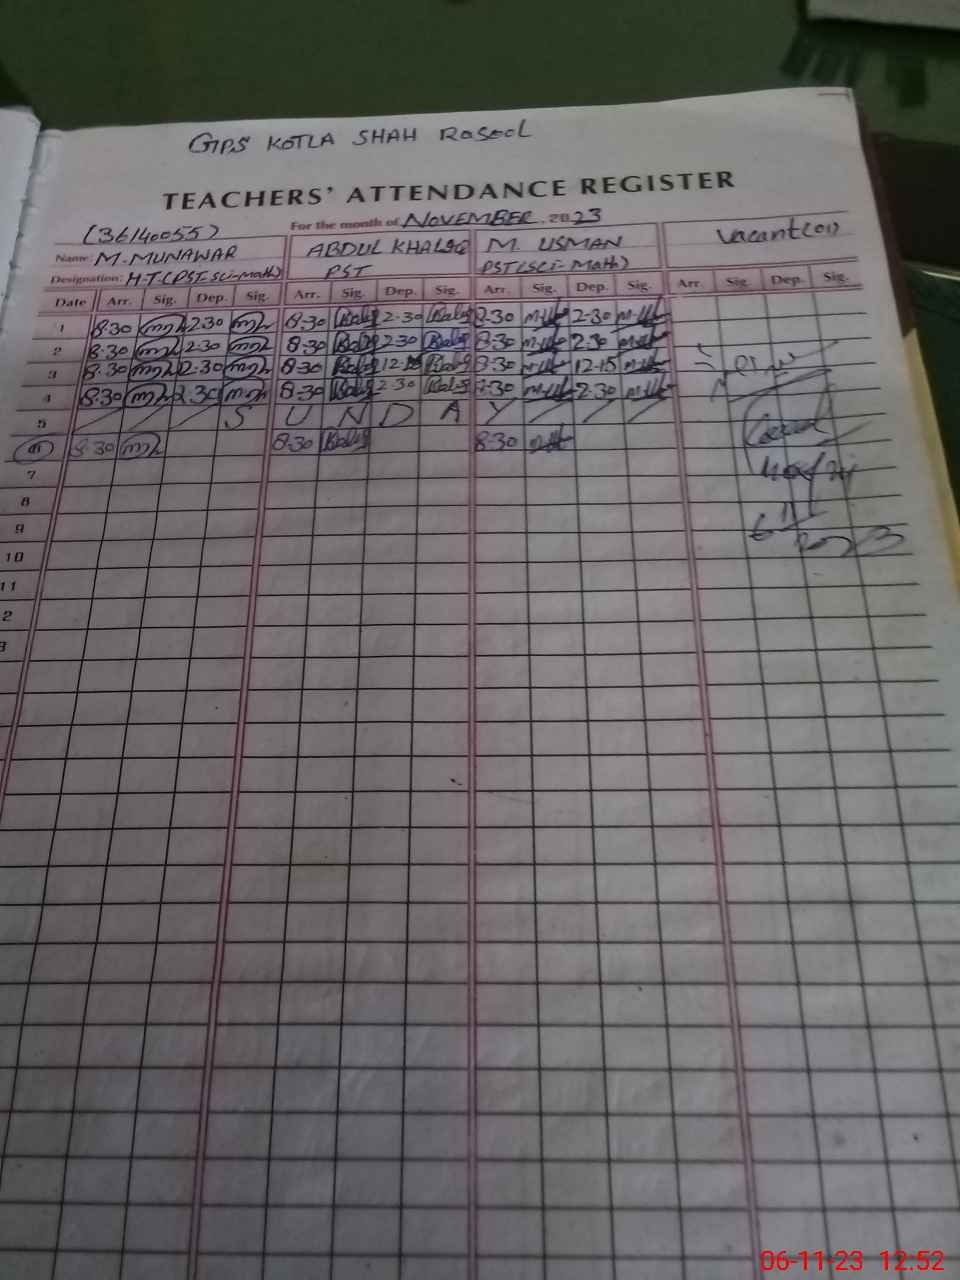 GPS KOTLA SHAH RASOOL
TEACHERS' ATTENDANCE REGISTER
For the month of NOVEMBER. 2023
(36140055)
Name: M. MUNAWAR ABDUL KHALIQ M. USMAN Vacant(01)
Designation: H-T(PST-Sci-Math) PST PST(Sci-Math)
Date Arr. Sig. Dep. Sig. Arr. Sig. Dep. Sig. Arr. Sig. Dep. Sig. Arr. Sig. Dep. Sig.
1 8:30 2:30 8:30 2-30 8:30 2-30
2 8:30 2:30 8:30 2-30 8:30 2-30
3 8:30 2:30 8:30 12-15 8:30 12-15
4 8:30 2:30 8:30 2-30 8:30 2-30
5 SUNDAY
6 8:30 8:30 8:30
7
8
9
10
11
2
3
06-11-23 12:52